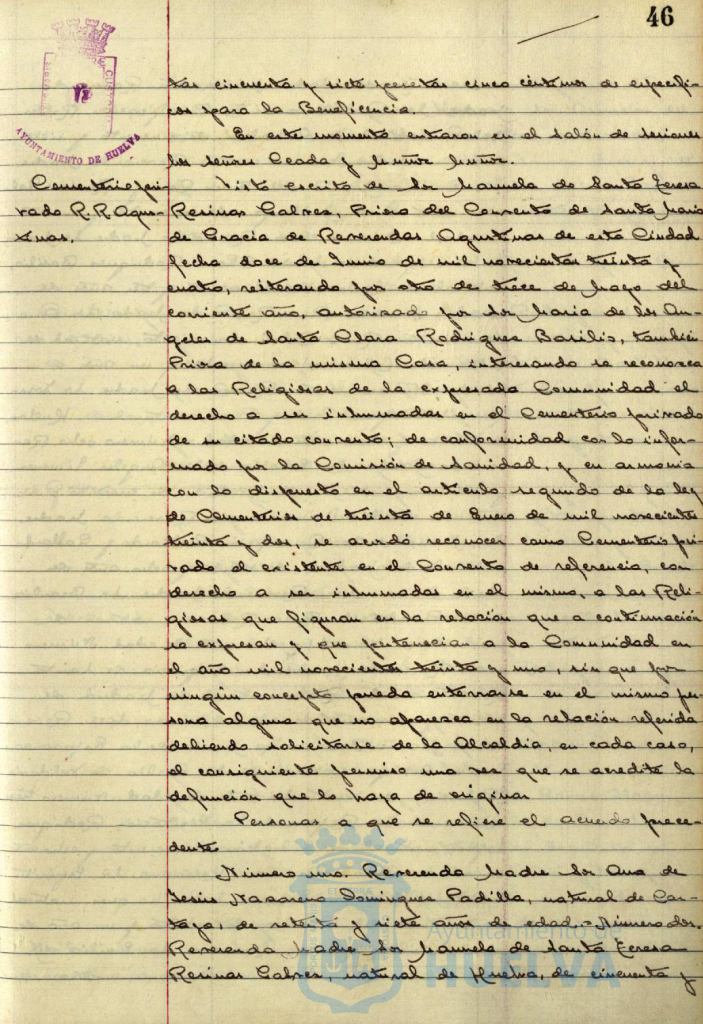 46
AYUNTAMIENTO DE HUELVA
tas cincuenta y siete pesetas cinco céntimos de específi-
cos para la Beneficencia.
En este momento entraron en el salón de sesiones
los señores Ceada y Muñoz Muñoz.
Cementerio pri-
vado R.R. Agus-
tinas.
Visto escrito de Sor Manuela de Santa Teresa
Resinas Galvez, Priora del Convento de Santa María
de Gracia de Reverendas Agustinas de esta Ciudad
fecha doce de Junio de mil novecientos treinta y
cuatro, reiterando por otro de trece de Mayo del
corriente año, autorizado por Sor María de los An-
geles de Santa Clara Rodriguez Basilio, también
Priora de la misma Casa, interesando se reconozca
a las Religiosas de la expresada Comunidad el
derecho a ser inhumadas en el Cementerio privado
de su citado convento; de conformidad con lo infor-
mado por la Comisión de Sanidad, y en armonia
con lo dispuesto en el articulo segundo de la ley
de Cementerios de treinta de Enero de mil novecientos
treinta y dos, se acordó reconocer como Cementerio pri-
vado el existente en el Convento de referencia, con
derecho a ser inhumadas en el mismo, a las Reli-
giosas que figuran en la relación que a continuación
se expresan y que pertenecian a la Comunidad en
el año mil novecientos treinta y uno, sin que por
ningún concepto pueda enterrarse en el mismo per-
sona alguna que no aparezca en la relación referida
debiendo solicitarse de la Alcaldia, en cada caso,
el consiguiente permiso una vez que se acredite la
defunción que lo haya de originar.
Personas a que se refiere el acuerdo prece-
dente.
Número uno. Reverenda Madre Sor Ana de
Jesús Nazareno Dominguez Padilla, natural de Car-
taya, de setenta y siete años de edad.=Número dos.
Reverenda Madre Sor Manuela de Santa Teresa
Resinas Galvez, natural de Huelva, de cincuenta y
Ayuntamiento de
HUELVA